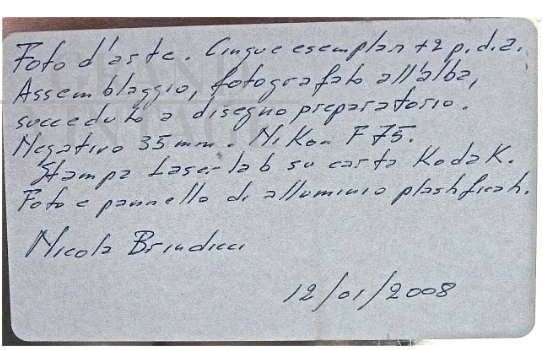 Foto d'arte. Cinque esemplari +2 p.d.a.
Assemblaggio, fotografato all'alba,
succeduto a disegno preparatorio.
Negativo 35 mm. Nikon F75.
Stampa Laser-lab su carta Kodak.
Foto e pannello di alluminio plastificati.
Nicola Brindicci
12/01/2008